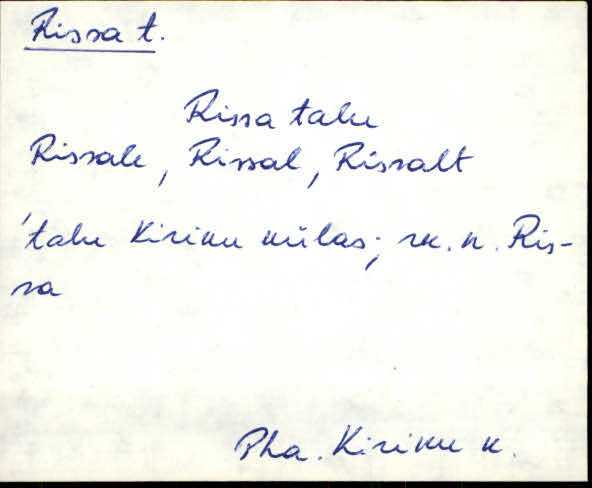 Rissa t.
Rissa talu
Rissale, Rissal, Rissalt
'talu Kiriku külas; rk. n. Ris-
sa
Pha. Kiriku k.